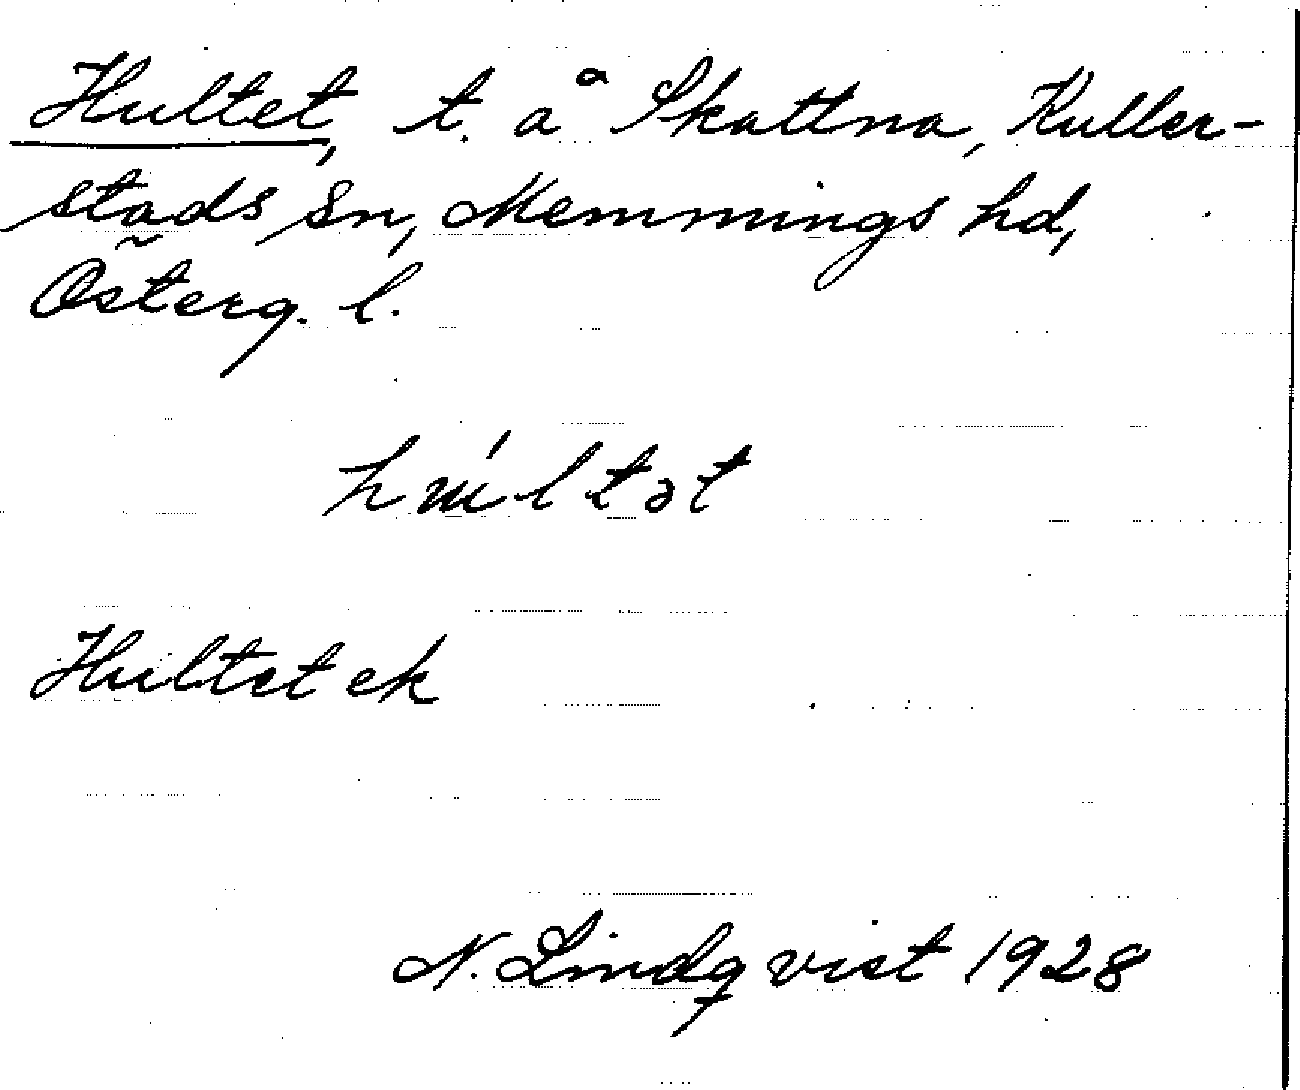 Hultet, t. å Skattna, Kuller-
stads sn, Memmings hd,
Österg. l.
húltət
Hultet ek
N. Lindqvist 1928